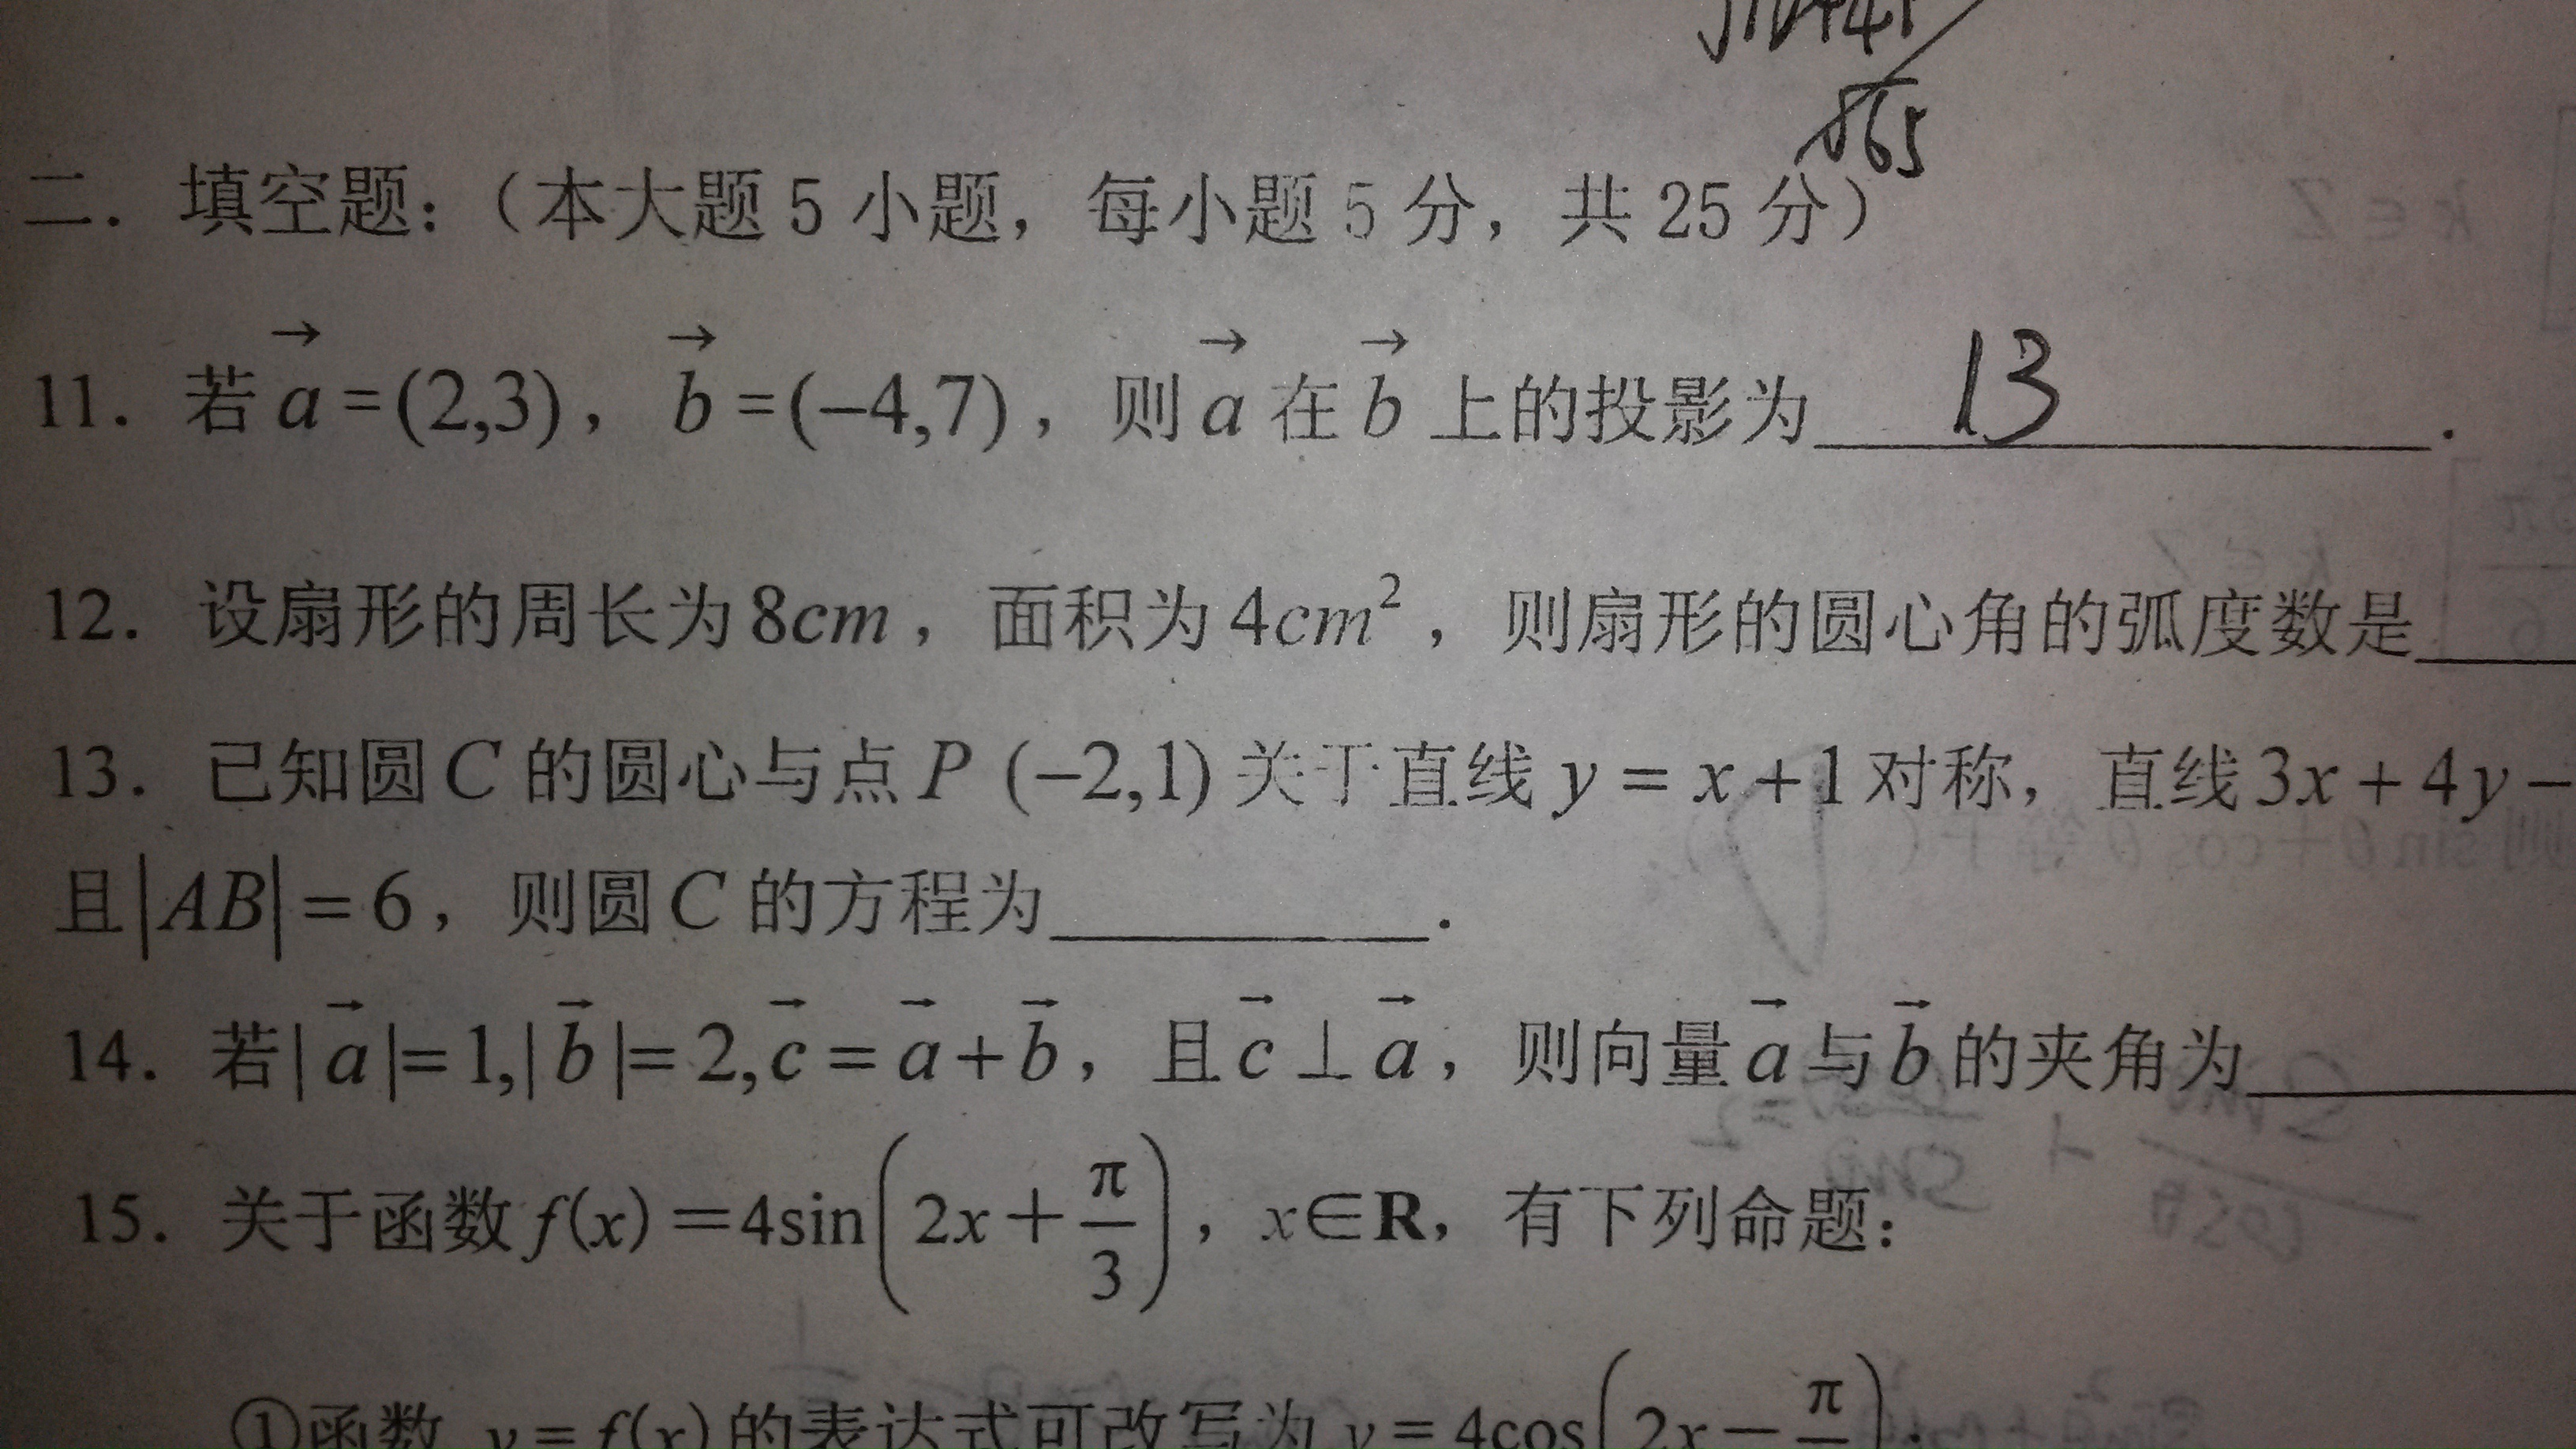 √65
二. 填空题:（本大题 5 小题，每小题 5 分，共 25 分）
11. 若 $\vec{a}=(2,3)$，$\vec{b}=(-4,7)$，则 $\vec{a}$ 在 $\vec{b}$ 上的投影为 13 .
12. 设扇形的周长为 $8cm$，面积为 $4cm^2$，则扇形的圆心角的弧度数是____
13. 已知圆 C 的圆心与点 P (−2,1) 关于直线 y = x + 1 对称，直线 3x + 4y −
且 |AB| = 6，则圆 C 的方程为________.
14. 若 $|\vec{a}|=1,|\vec{b}|=2,\vec{c}=\vec{a}+\vec{b}$，且 $\vec{c}\perp\vec{a}$，则向量 $\vec{a}$ 与 $\vec{b}$ 的夹角为________
15. 关于函数 $f(x)=4\sin\left(2x+\frac{\pi}{3}\right)$，x∈R，有下列命题:
①函数 y = f(x) 的表达式可改写为 y = 4cos(2x − π